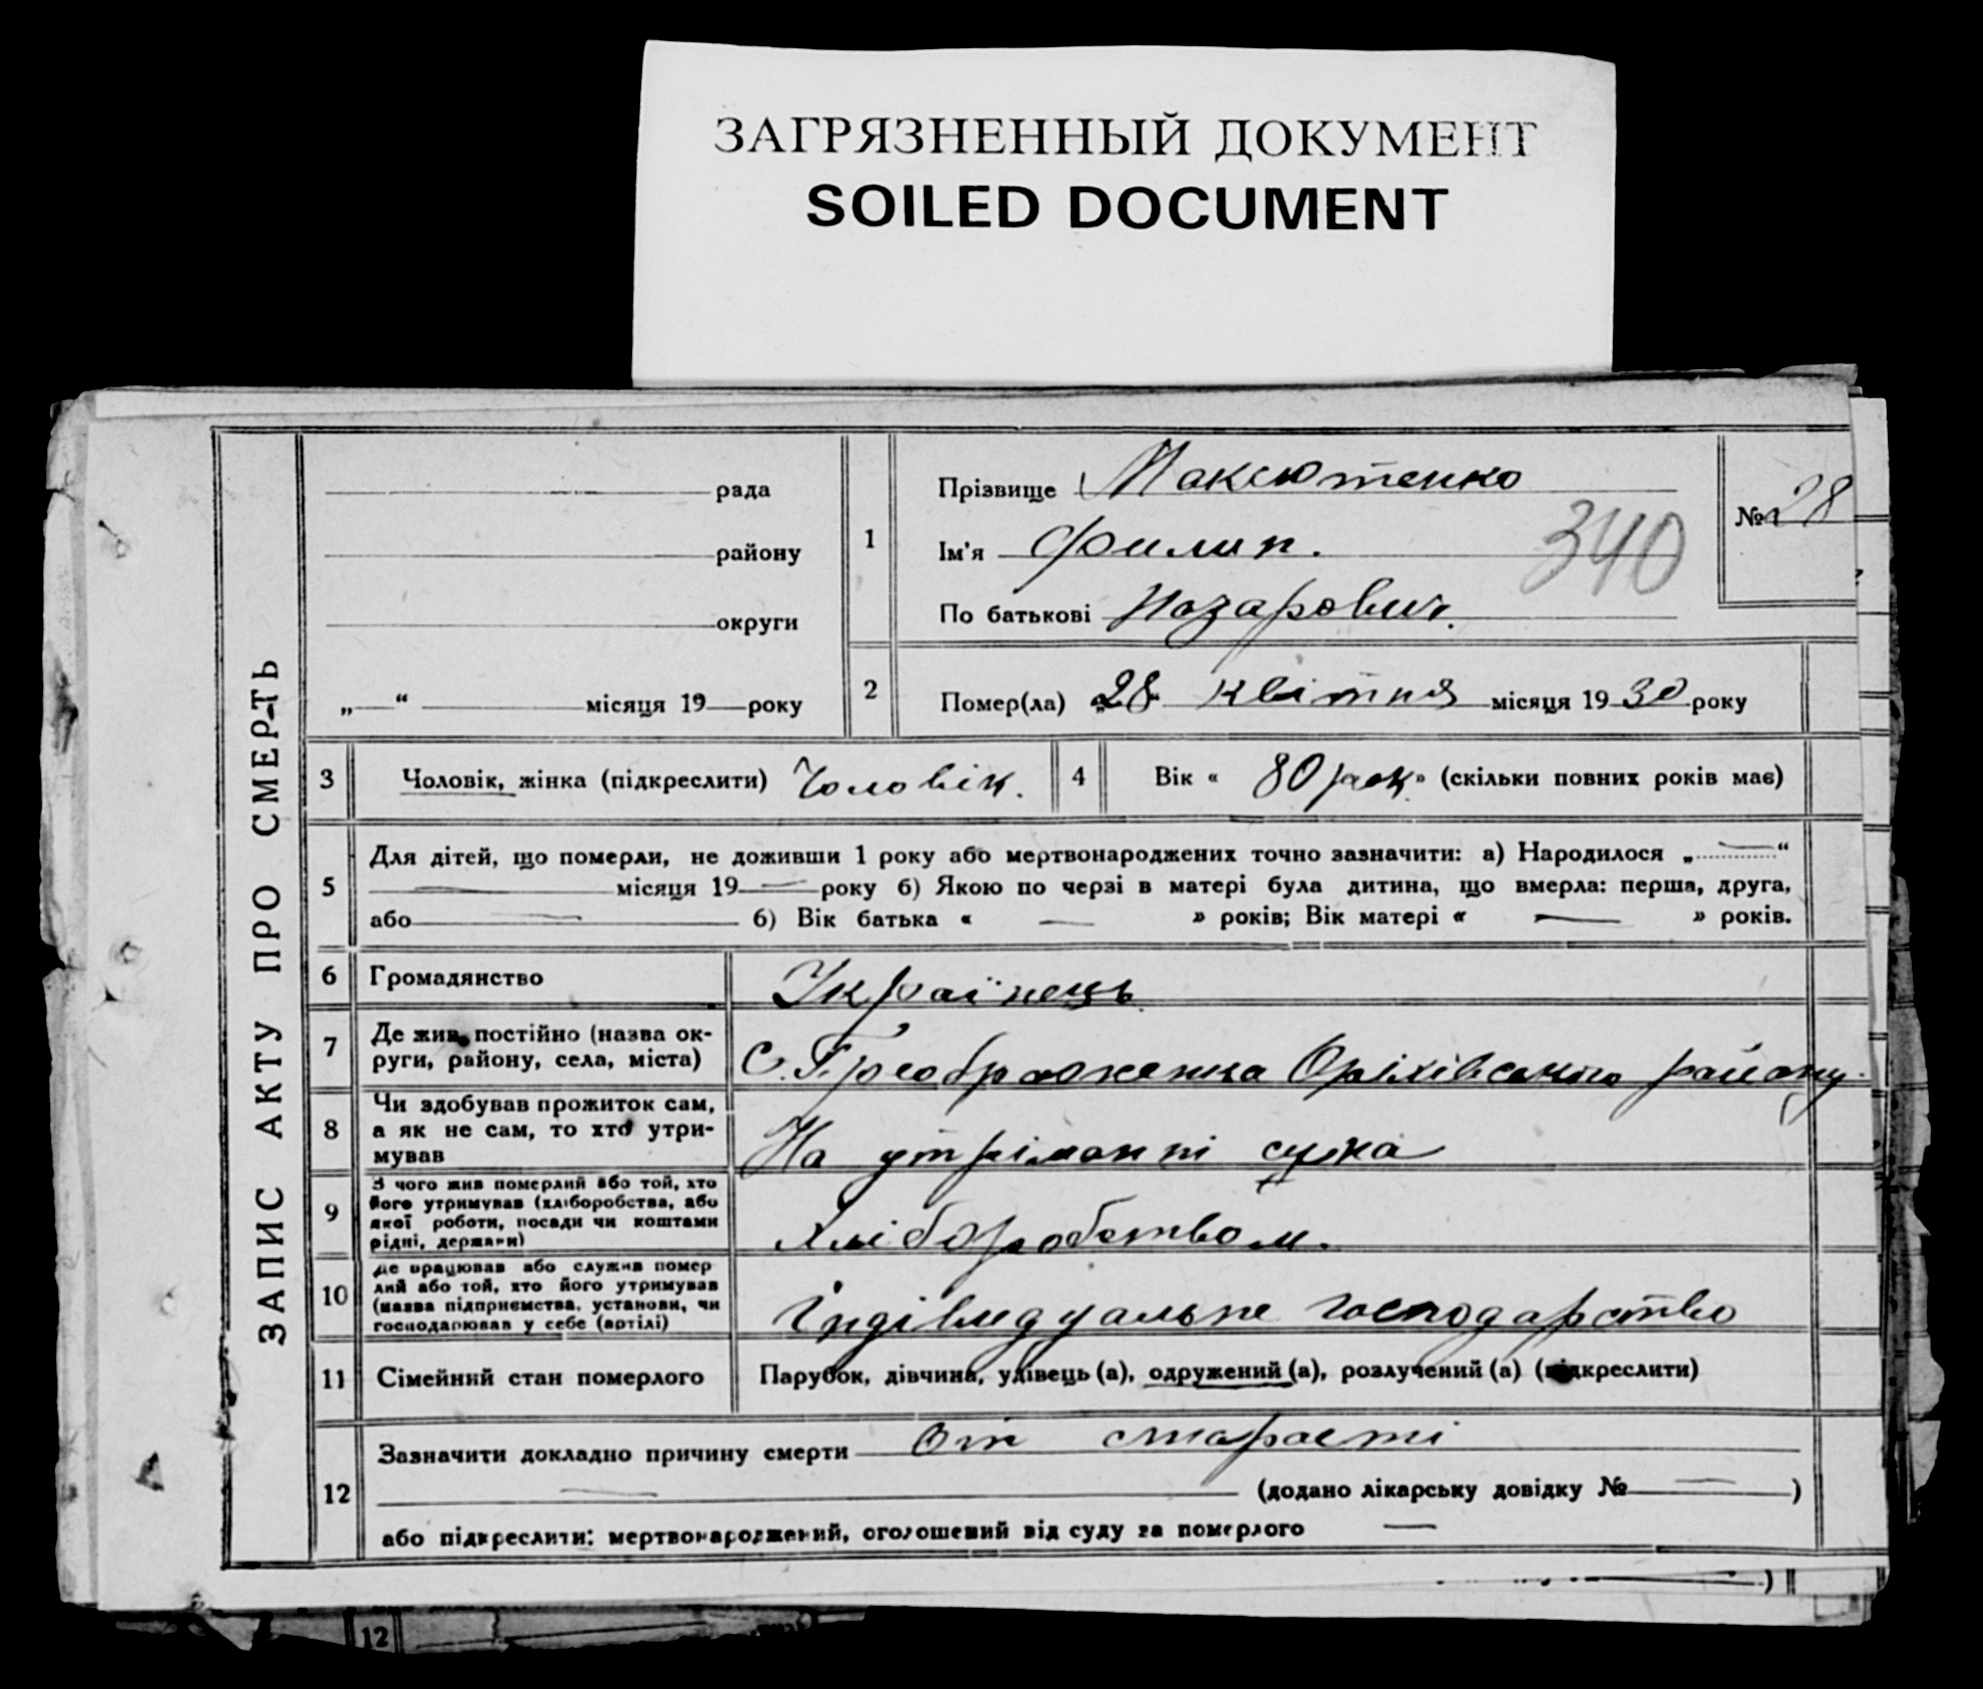 ЗАГРЯЗНЕННЫЙ ДОКУМЕНТ
SOILED DOCUMENT
ЗАПИС АКТУ ПРО СМЕРТЬ
рада
району
округи
„ “ місяця 19 року
1
Прізвище Максютенко
Ім'я Филип.
340
По батькові Назарович.
№ 28
2
Помер(ла) „28 квітня місяця 1930 року
3 Чоловік, жінка (підкреслити) Чоловік.
4 Вік « 80 рок » (скільки повних років має)
5
Для дітей, що померли, не доживши 1 року або мертвонароджених точно зазначити: а) Народилося „—“
— місяця 19 — року б) Якою по черзі в матері була дитина, що вмерла: перша, друга,
або — б) Вік батька « — » років; Вік матері « — » років.
6 Громадянство Українець
7 Де жив постійно (назва ок-
руги, району, села, міста)
С. Преображенка Оріхівського району.
8 Чи здобував прожиток сам,
а як не сам, то хто утри-
мував
На утріманні сина
9 З чого жив померлий або той, хто
його утримував (хліборобства, або
якої роботи, посади чи коштами
рідні, держави)
Хліборобством.
10 Де працював або служив помер
лий або той, хто його утримував
(назва підприємства, установи, чи
господарював у себе (артілі)
Індівидуальне господарство
11 Сімейний стан померлого Парубок, дівчина, удівець (а), одружений (а), розлучений (а) (підкреслити)
12
Зазначити докладно причину смерти От старості
— (додано лікарську довідку № — )
або підкреслити: мертвонароджений, оголошений від суду за померлого —
)
12